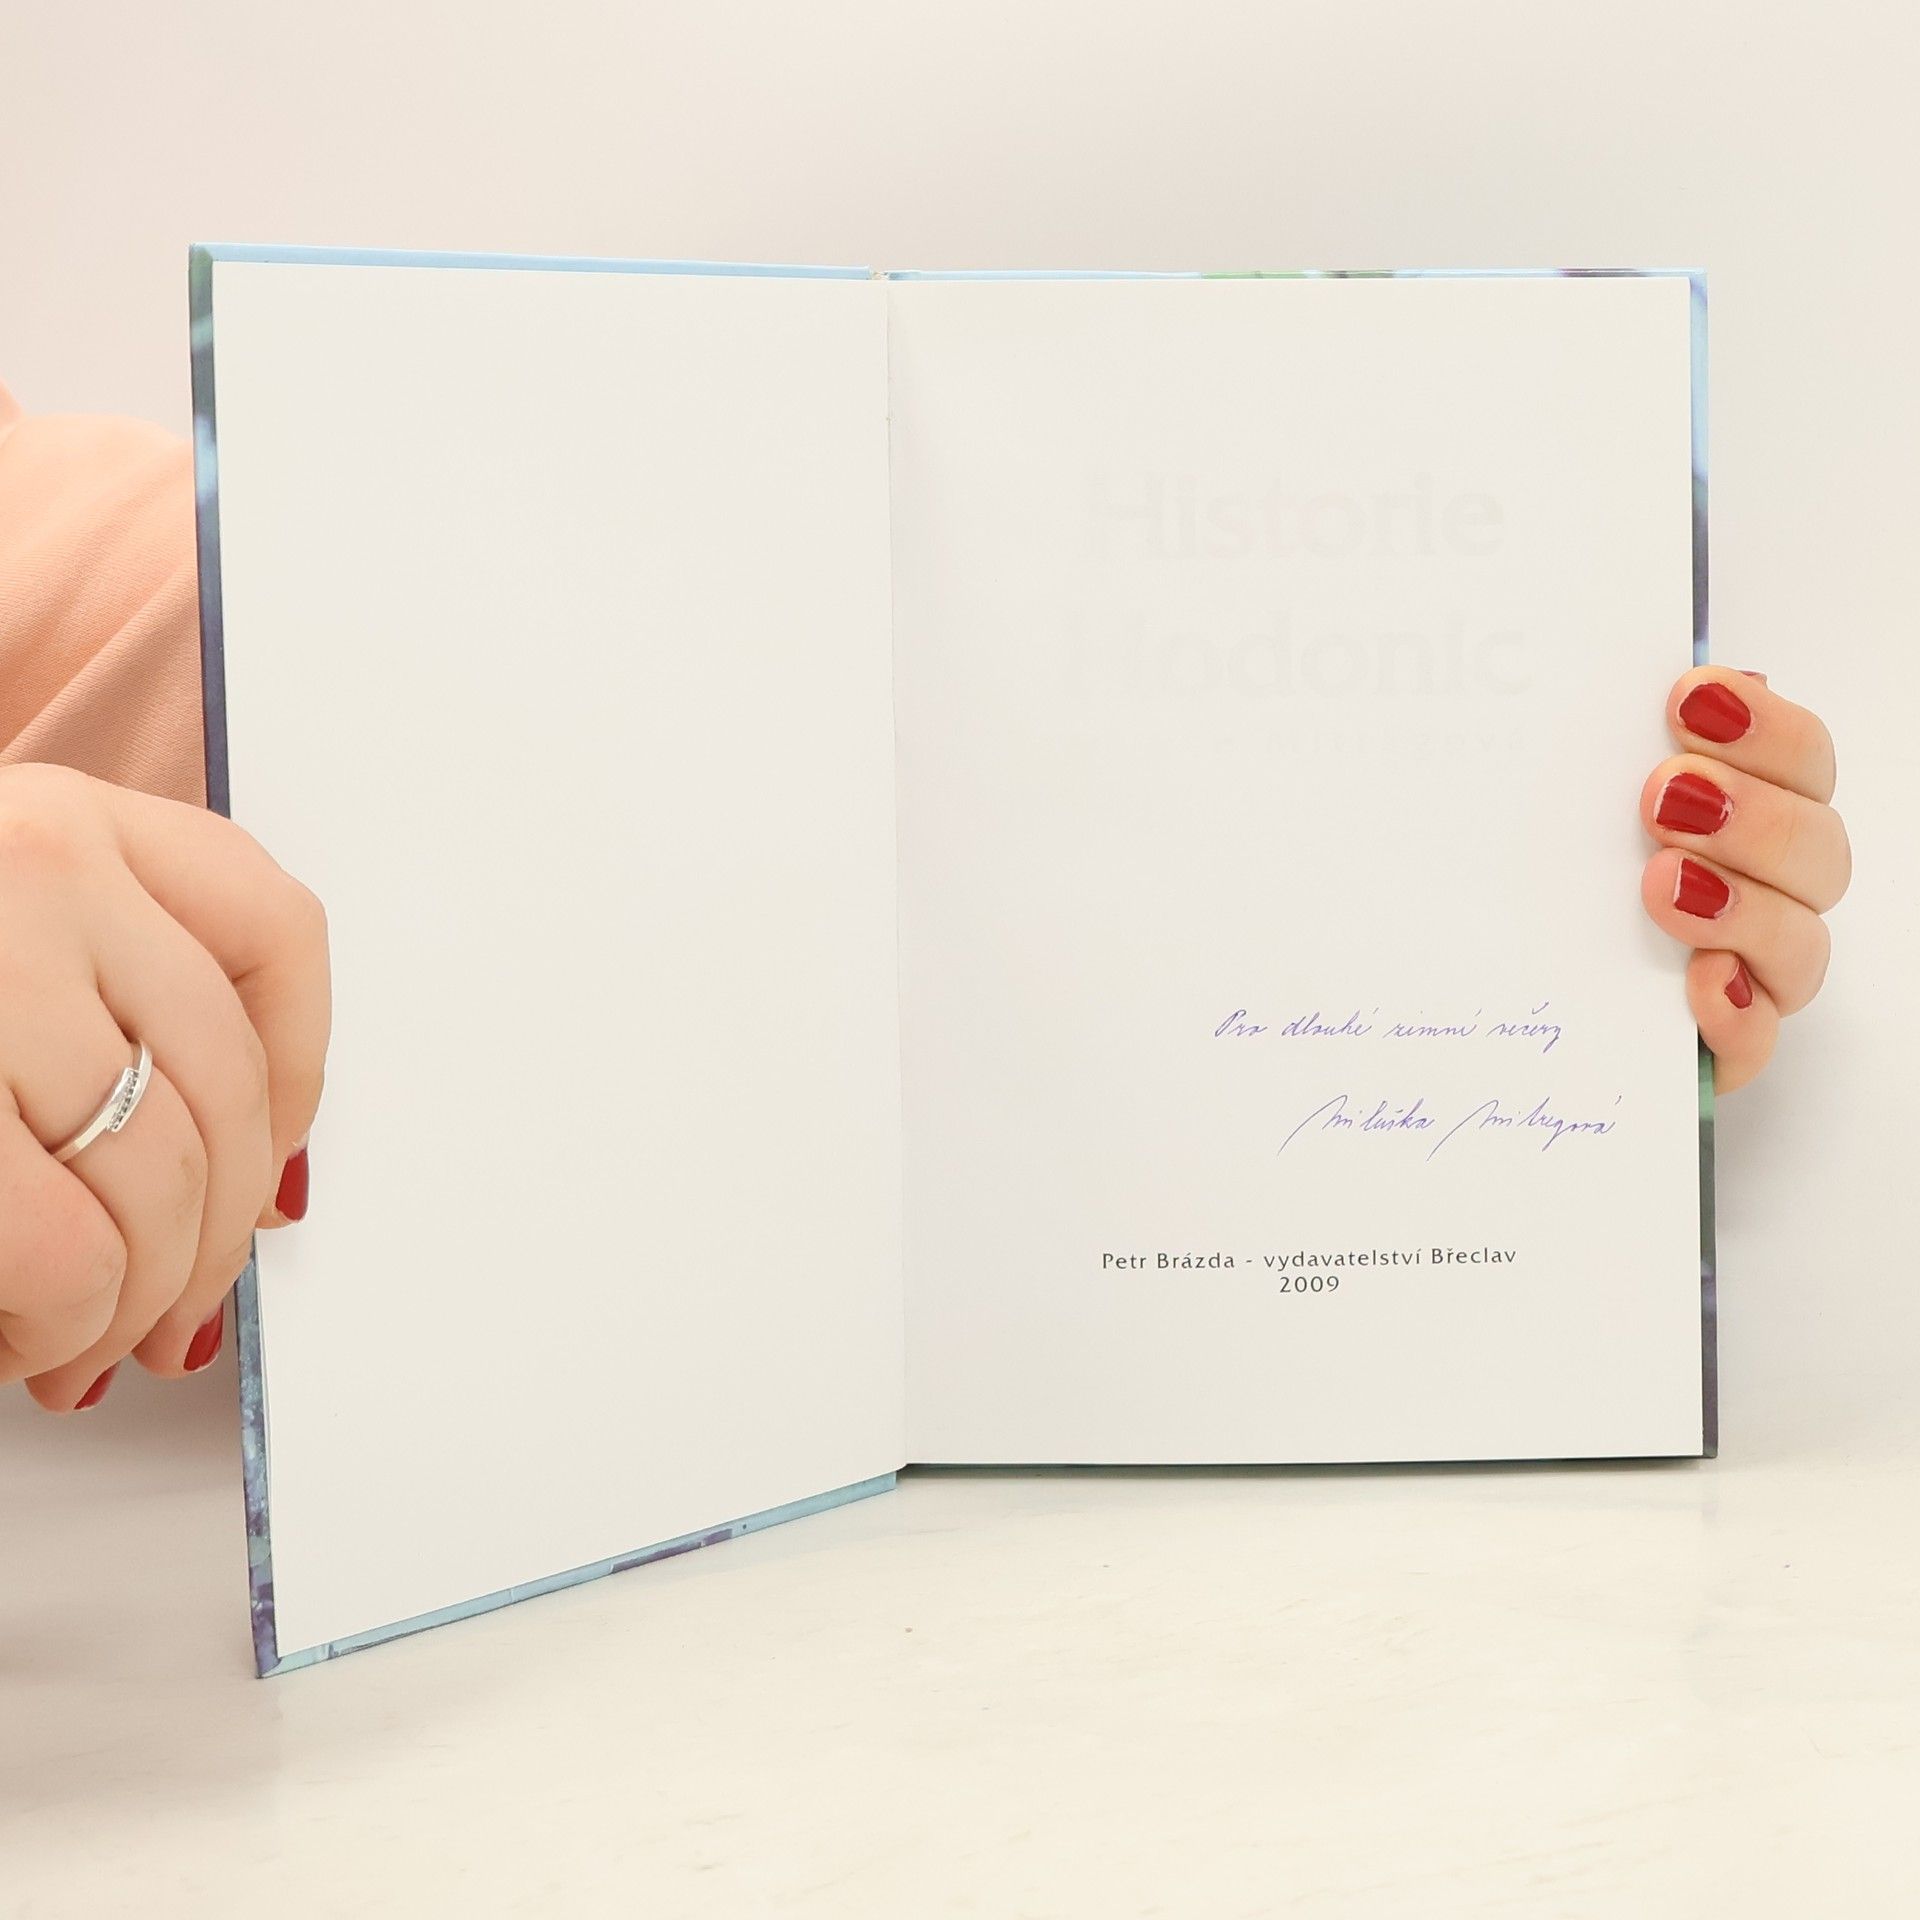 Historie
Hodonic
Mitregová
Pro dlouhé zimní večery
Miluška Mitregová
Petr Brázda - vydavatelství Břeclav
2009